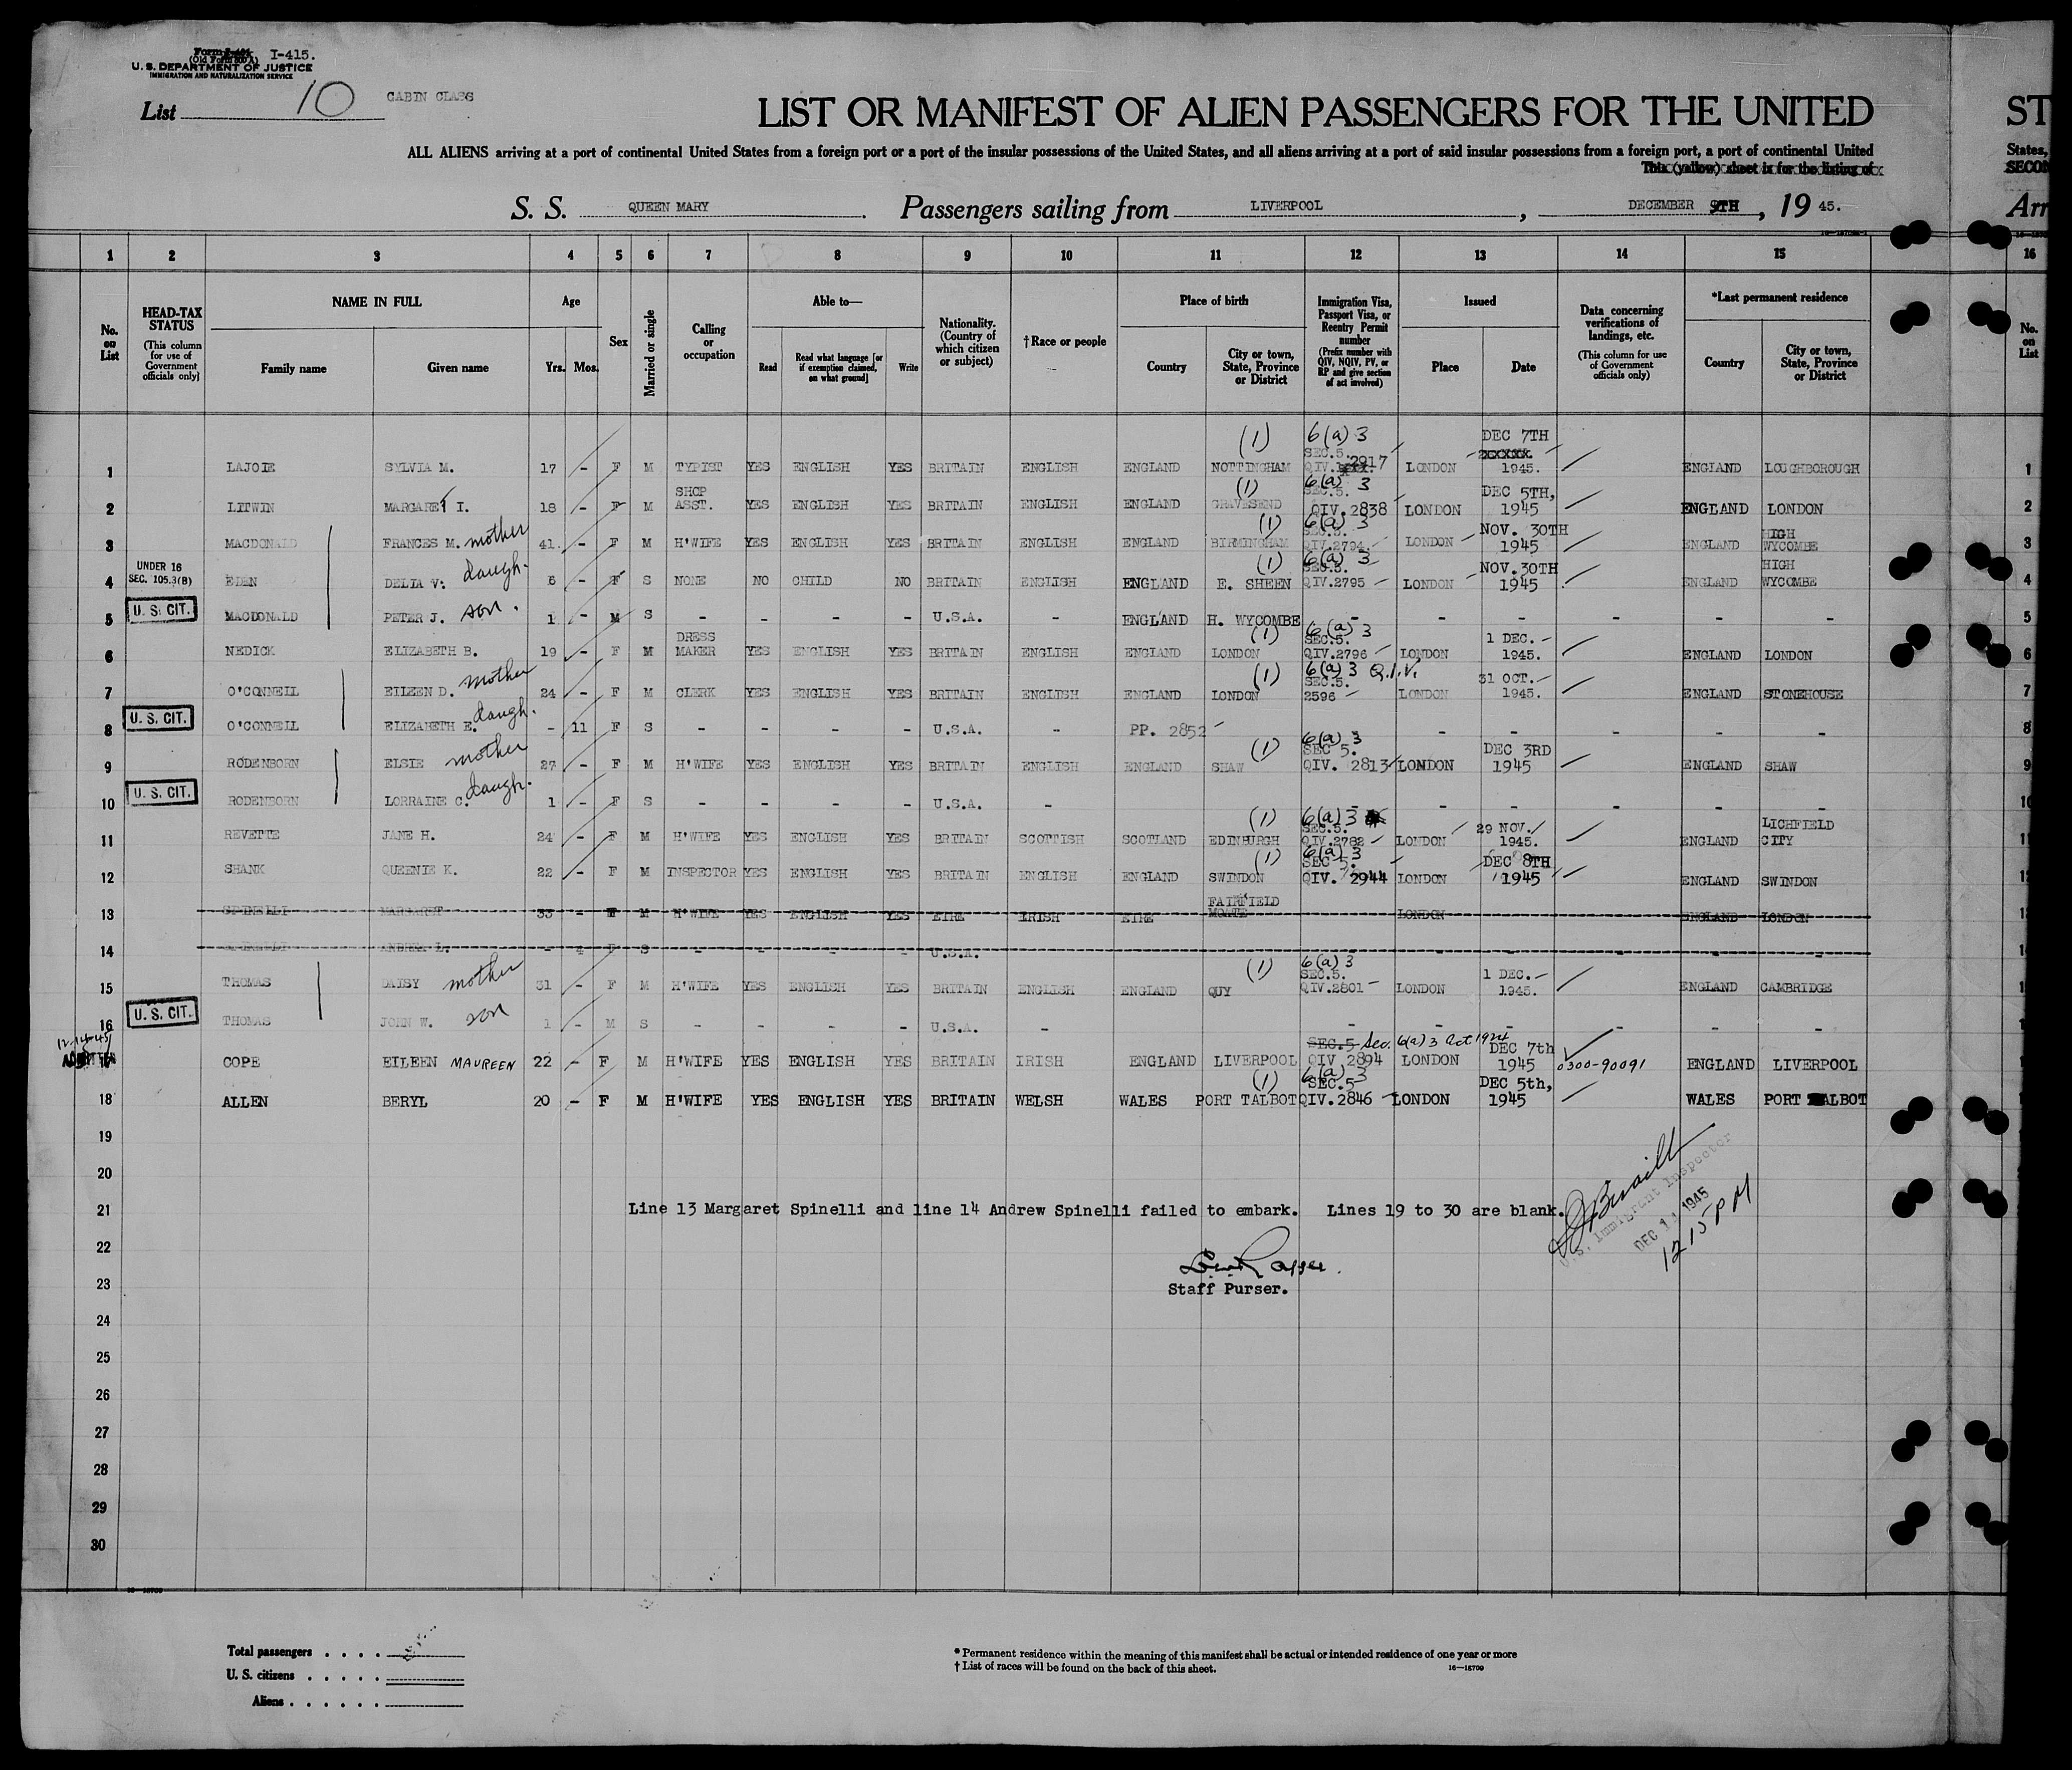 Form I-401 I-415.
(Old Form 500 A)
U. S. DEPARTMENT OF JUSTICE
IMMIGRATION AND NATURALIZATION SERVICE
List 10 CABIN CLASS
LIST OR MANIFEST OF ALIEN PASSENGERS FOR THE UNITED ST
ALL ALIENS arriving at a port of continental United States from a foreign port or a port of the insular possessions of the United States, and all aliens arriving at a port of said insular possessions from a foreign port, a port of continental United States,
This (yellow) sheet is for the listing of SECON
S. S. QUEEN MARY. Passengers sailing from LIVERPOOL, DECEMBER 9TH, 19 45. Arr
1 2 3 4 5 6 7 8 9 10 11 12 13 14 15 16
No. on List
HEAD-TAX STATUS (This column for use of Government officials only)
NAME IN FULL Family name Given name
Age Yrs. Mos.
Sex
Married or single
Calling or occupation
Able to— Read Read what language [or if exemption claimed, on what ground] Write
Nationality. (Country of which citizen or subject)
†Race or people
Place of birth Country City or town, State, Province or District
Immigration Visa, Passport Visa, or Reentry Permit number (Prefix number with QIV, NQIV, PV, or RP and give section of act involved)
Issued Place Date
Data concerning verifications of landings, etc. (This column for use of Government officials only)
*Last permanent residence Country City or town, State, Province or District
No. on List
1 LAJOIE SYLVIA M. 17 - F M TYPIST YES ENGLISH YES BRITAIN ENGLISH ENGLAND NOTTINGHAM (1) 6(a)3 SEC.5. QIV. 2917 LONDON DEC 7TH 1945. ENGLAND LOUGHBOROUGH 1
2 LITWIN MARGARET I. 18 - F M SHOP ASST. YES ENGLISH YES BRITAIN ENGLISH ENGLAND GRAVESEND (1) 6(a) 3 SEC.5. QIV. 2838 LONDON DEC 5TH, 1945 ENGLAND LONDON 2
3 MACDONALD FRANCES M. mother 41. - F M H'WIFE YES ENGLISH YES BRITAIN ENGLISH ENGLAND BIRMINGHAM (1) 6(a) 3 SEC.5. QIV.2794 LONDON NOV. 30TH 1945 ENGLAND HIGH WYCOMBE 3
4 UNDER 16 SEC. 105.3(B) EDEN DELIA V. daugh. 6 - F S NONE NO CHILD NO BRITAIN ENGLISH ENGLAND E. SHEEN (1) 6(a) 3 SEC.5. QIV.2795 LONDON NOV.30TH 1945 ENGLAND HIGH WYCOMBE 4
5 U. S. CIT. MACDONALD PETER J. son. 1 - M S - - - - U.S.A. ENGLAND H. WYCOMBE - - - - - - 5
6 NEDICK ELIZABETH B. 19 - F M DRESS MAKER YES ENGLISH YES BRITAIN ENGLISH ENGLAND LONDON (1) 6(a) 3 SEC.5. QIV.2796 LONDON 1 DEC. 1945. ENGLAND LONDON 6
7 O'CONNELL EILEEN D. mother 24 - F M CLERK YES ENGLISH YES BRITAIN ENGLISH ENGLAND LONDON (1) 6(a) 3 Q.I.V. SEC.5. 2596 LONDON 31 OCT. 1945. ENGLAND STONEHOUSE 7
8 U. S. CIT. O'CONNELL ELIZABETH E. daugh. - 11 F S - - - - U.S.A. - PP. 2852 - - - - - 8
9 RODENBORN ELSIE mother 27 - F M H'WIFE YES ENGLISH YES BRITAIN ENGLISH ENGLAND SHAW (1) 6(a) 3 SEC 5. QIV. 2813 LONDON DEC 3RD 1945 ENGLAND SHAW 9
10 U. S. CIT. RODENBORN LORRAINE C. daugh. 1 - F S - - - - U.S.A. - - - - - - - 10
11 REVETTE JANE H. 24 - F M H'WIFE YES ENGLISH YES BRITAIN SCOTTISH SCOTLAND EDINBURGH (1) 6(a) 3 SEC.5. QIV.2782 LONDON 29 NOV. 1945. ENGLAND LICHFIELD CITY 11
12 SHANK QUEENIE K. 22 - F M INSPECTOR YES ENGLISH YES BRITAIN ENGLISH ENGLAND SWINDON (1) 6(a) 3 SEC 5. QIV. 2944 LONDON DEC 8TH 1945 ENGLAND SWINDON 12
13 SPINELLI MARGARET 33 - F M H'WIFE YES ENGLISH YES EIRE IRISH EIRE FAIRFIELD MOATE LONDON ENGLAND LONDON 13
14 SPINELLI ANDREW L. - 4 F S - - - - U.S.A. - - - - - - 14
15 THOMAS DAISY mother 31 - F M H'WIFE YES ENGLISH YES BRITAIN ENGLISH ENGLAND QUY (1) 6(a) 3 SEC.5. QIV.2801 LONDON 1 DEC. 1945. ENGLAND CAMBRIDGE
16 U. S. CIT. THOMAS JOHN W. son 1 - M S - - - - U.S.A. - - - - - -
12-14-45 ADMITTED COPE EILEEN MAUREEN 22 - F M H'WIFE YES ENGLISH YES BRITAIN IRISH ENGLAND LIVERPOOL SEC.5 Sec. 6(a) 3 Act 1924 QIV 2894 LONDON DEC 7th 1945 0300-90091 ENGLAND LIVERPOOL
18 ALLEN BERYL 20 - F M H'WIFE YES ENGLISH YES BRITAIN WELSH WALES PORT TALBOT (1) 6(a) 3 SEC.5 QIV.2846 LONDON DEC 5th, 1945 WALES PORT TALBOT
19
20
21 Line 13 Margaret Spinelli and line 14 Andrew Spinelli failed to embark. Lines 19 to 30 are blank.
U. S. Immigrant Inspector
DEC 1 1945
12 15 PM
22
23 Staff Purser.
24
25
26
27
28
29
30
16—18709
Total passengers . . . .
U. S. citizens . . . . .
Aliens . . . . . .
* Permanent residence within the meaning of this manifest shall be actual or intended residence of one year or more
† List of races will be found on the back of this sheet. 16—18709